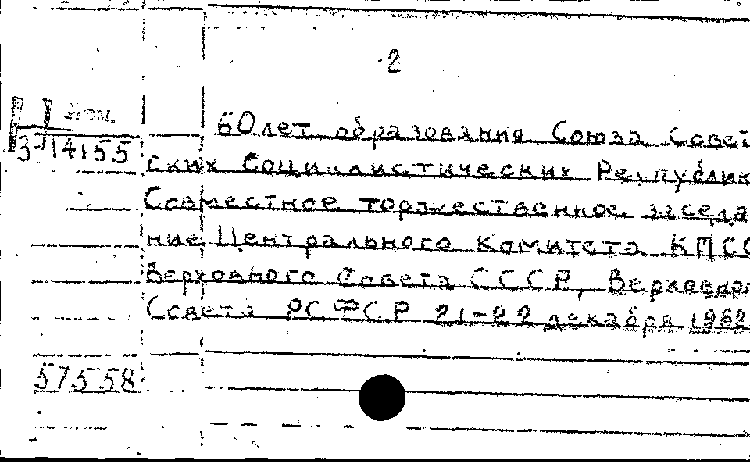 2
60 лет образования Союза Совет
3-14155
ских Социалистических Республик
Совместное торжественное заседа
ние Центрального Комитета КПСС
Верховного Совета СССР, Верховного
Совета РСФСР 21-22 декабря 1982
57558